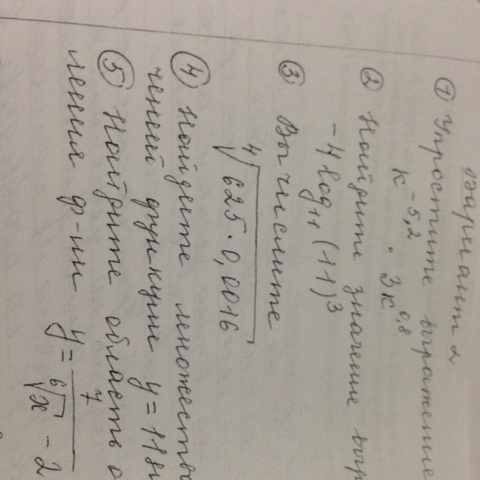 Вариант 2
① Упростите выражение
к^-5,2 · 3к^0,8
② Найдите значение выр
-4 log₁₁ (11)³
③ Вычислите
⁴√625·0,0016
④ Найдите множество
чений функции y = 11
⑤ Найдите область о
ления ф-ии y = 7/(⁶√x - 2